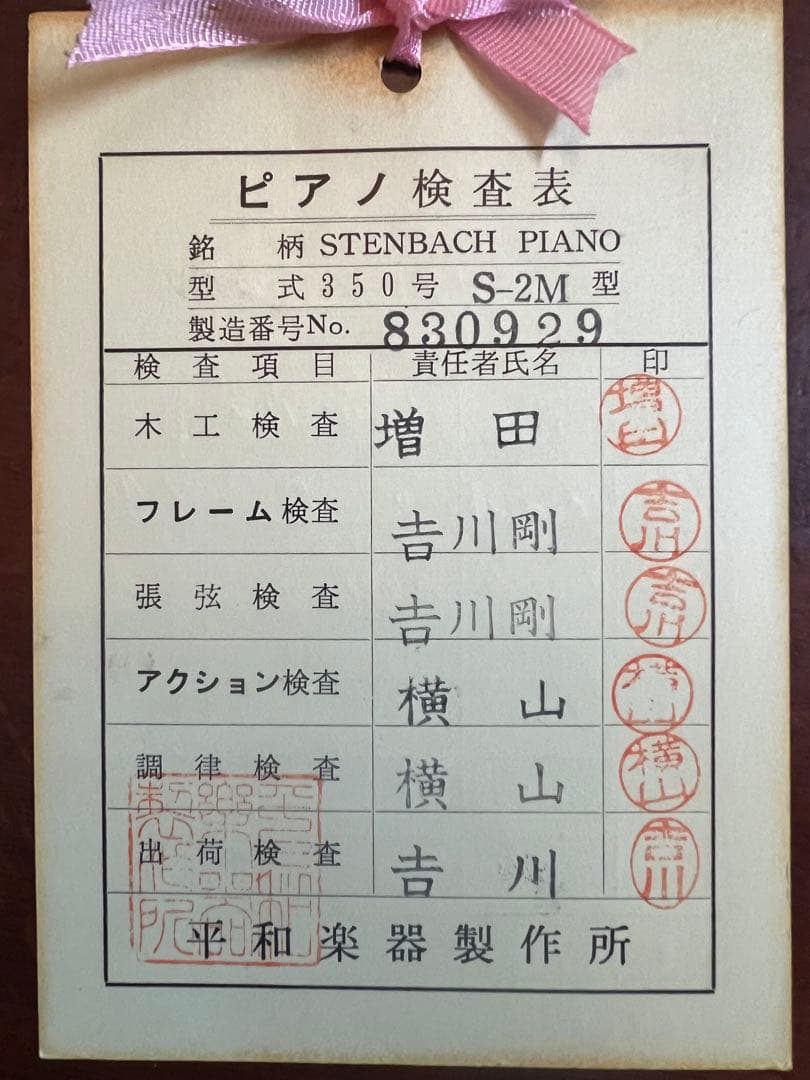 ピアノ検査表
銘柄 STENBACH PIANO
型式 350号 S-2M 型
製造番号No. 830929
検査項目 責任者氏名 印
木工検査 増田 増田
フレーム検査 𠮷川剛 吉川
張弦検査 𠮷川剛 吉川
アクション検査 横山 横山
調律検査 横山 横山
出荷検査 𠮷川 吉川
平和楽器製作所